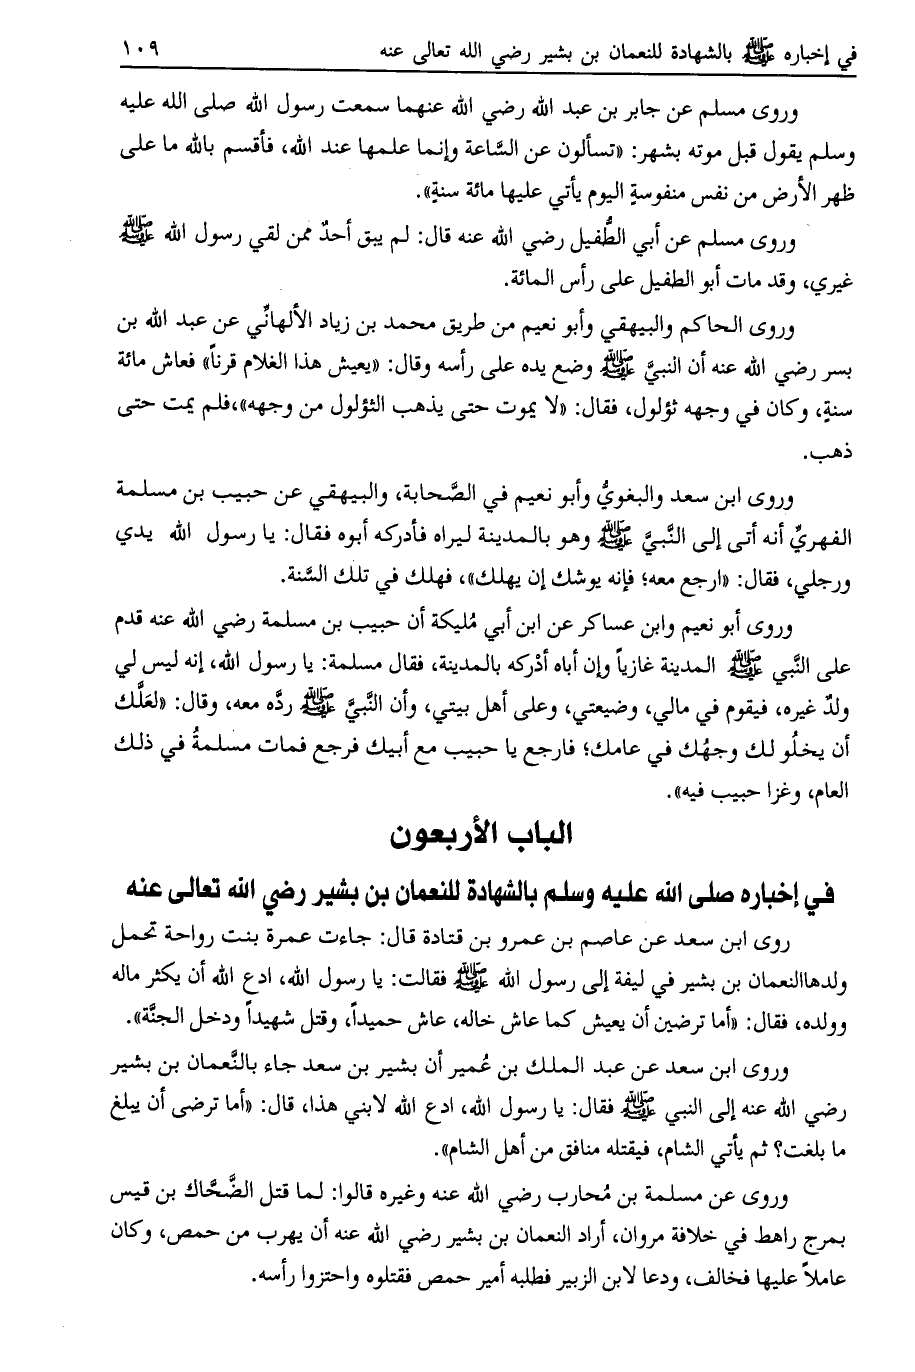 في إخباره ﷺ بالشهادة للنعمان بن بشير رضي الله تعالى عنه ١٠٩
وروى مسلم عن جابر بن عبد الله رضي الله عنهما سمعت رسول الله صلى الله عليه
وسلم يقول قبل موته بشهر: «تسألون عن السَّاعة وإنما علمها عند الله، فأقسم بالله ما على
ظهر الأرض من نفس منفوسةٍ اليوم يأتي عليها مائة سنةٍ».
وروى مسلم عن أبي الطُّفيل رضي الله عنه قال: لم يبق أحدٌ ممن لقي رسول الله ﷺ
غيري، وقد مات أبو الطفيل على رأس المائة.
وروى الحاكم والبيهقي وأبو نعيم من طريق محمد بن زياد الألهانِّي عن عبد الله بن
بسر رضي الله عنه أن النبيَّ ﷺ وضع يده على رأسه وقال: «يعيش هذا الغلام قرناً» فعاش مائة
سنةٍ، وكان في وجهه ثؤلول، فقال: «لا يموت حتى يذهب الثؤلول من وجهه»،فلم يمت حتى
ذهب.
وروى ابن سعد والبغويُّ وأبو نعيم في الصَّحابة، والبيهقي عن حبيب بن مسلمة
الفهريِّ أنه أتى إلى النَّبيَّ ﷺ وهو بالمدينة ليراه فأدركه أبوه فقال: يا رسول الله يدي
ورجلي، فقال: «ارجع معه؛ فإنه يوشك إن يهلك»، فهلك في تلك السَّنة.
وروى أبو نعيم وابن عساكر عن ابن أبي مُليكة أن حبيب بن مسلمة رضي الله عنه قدم
على النَّبي ﷺ المدينة غازياً وإن أباه أدْركه بالمدينة، فقال مسلمة: يا رسول الله، إنه ليس لي
ولدٌ غيره، فيقوم في مالي، وضيعتي، وعلى أهل بيتي، وأن النَّبيَّ ﷺ ردَّه معه، وقال: «لعَلَّك
أن يخلُو لك وجهُك في عامك؛ فارجع يا حبيب مع أبيك فرجع فمات مسلمةُ في ذلك
العام، وغزا حبيب فيه».
الباب الأربعون
في إخباره صلى الله عليه وسلم بالشهادة للنعمان بن بشير رضي الله تعالى عنه
روى ابن سعد عن عاصم بن عمرو بن قتادة قال: جاءت عمرة بنت رواحة تحمل
ولدهاالنعمان بن بشير في ليفة إلى رسول الله ﷺ فقالت: يا رسول الله، ادع الله أن يكثر ماله
وولده، فقال: «أما ترضين أن يعيش كما عاش خاله، عاش حميداً، وقتل شهيداً ودخل الجنَّة».
وروى ابن سعد عن عبد الملك بن عُمير أن بشير بن سعد جاء بالنَّعمان بن بشير
رضي الله عنه إلى النبي ﷺ فقال: يا رسول الله، ادع الله لابني هذا، قال: «أما ترضى أن يبلغ
ما بلغت؟ ثم يأتي الشام، فيقتله منافق من أهل الشام».
وروى عن مسلمة بن مُحارب رضي الله عنه وغيره قالوا: لما قتل الضَّحَّاك بن قيس
بمرج راهط في خلافة مروان، أراد النعمان بن بشير رضي الله عنه أن يهرب من حمص، وكان
عاملاً عليها فخالف، ودعا لابن الزبير فطلبه أمير حمص فقتلوه واحتزوا رأسه.